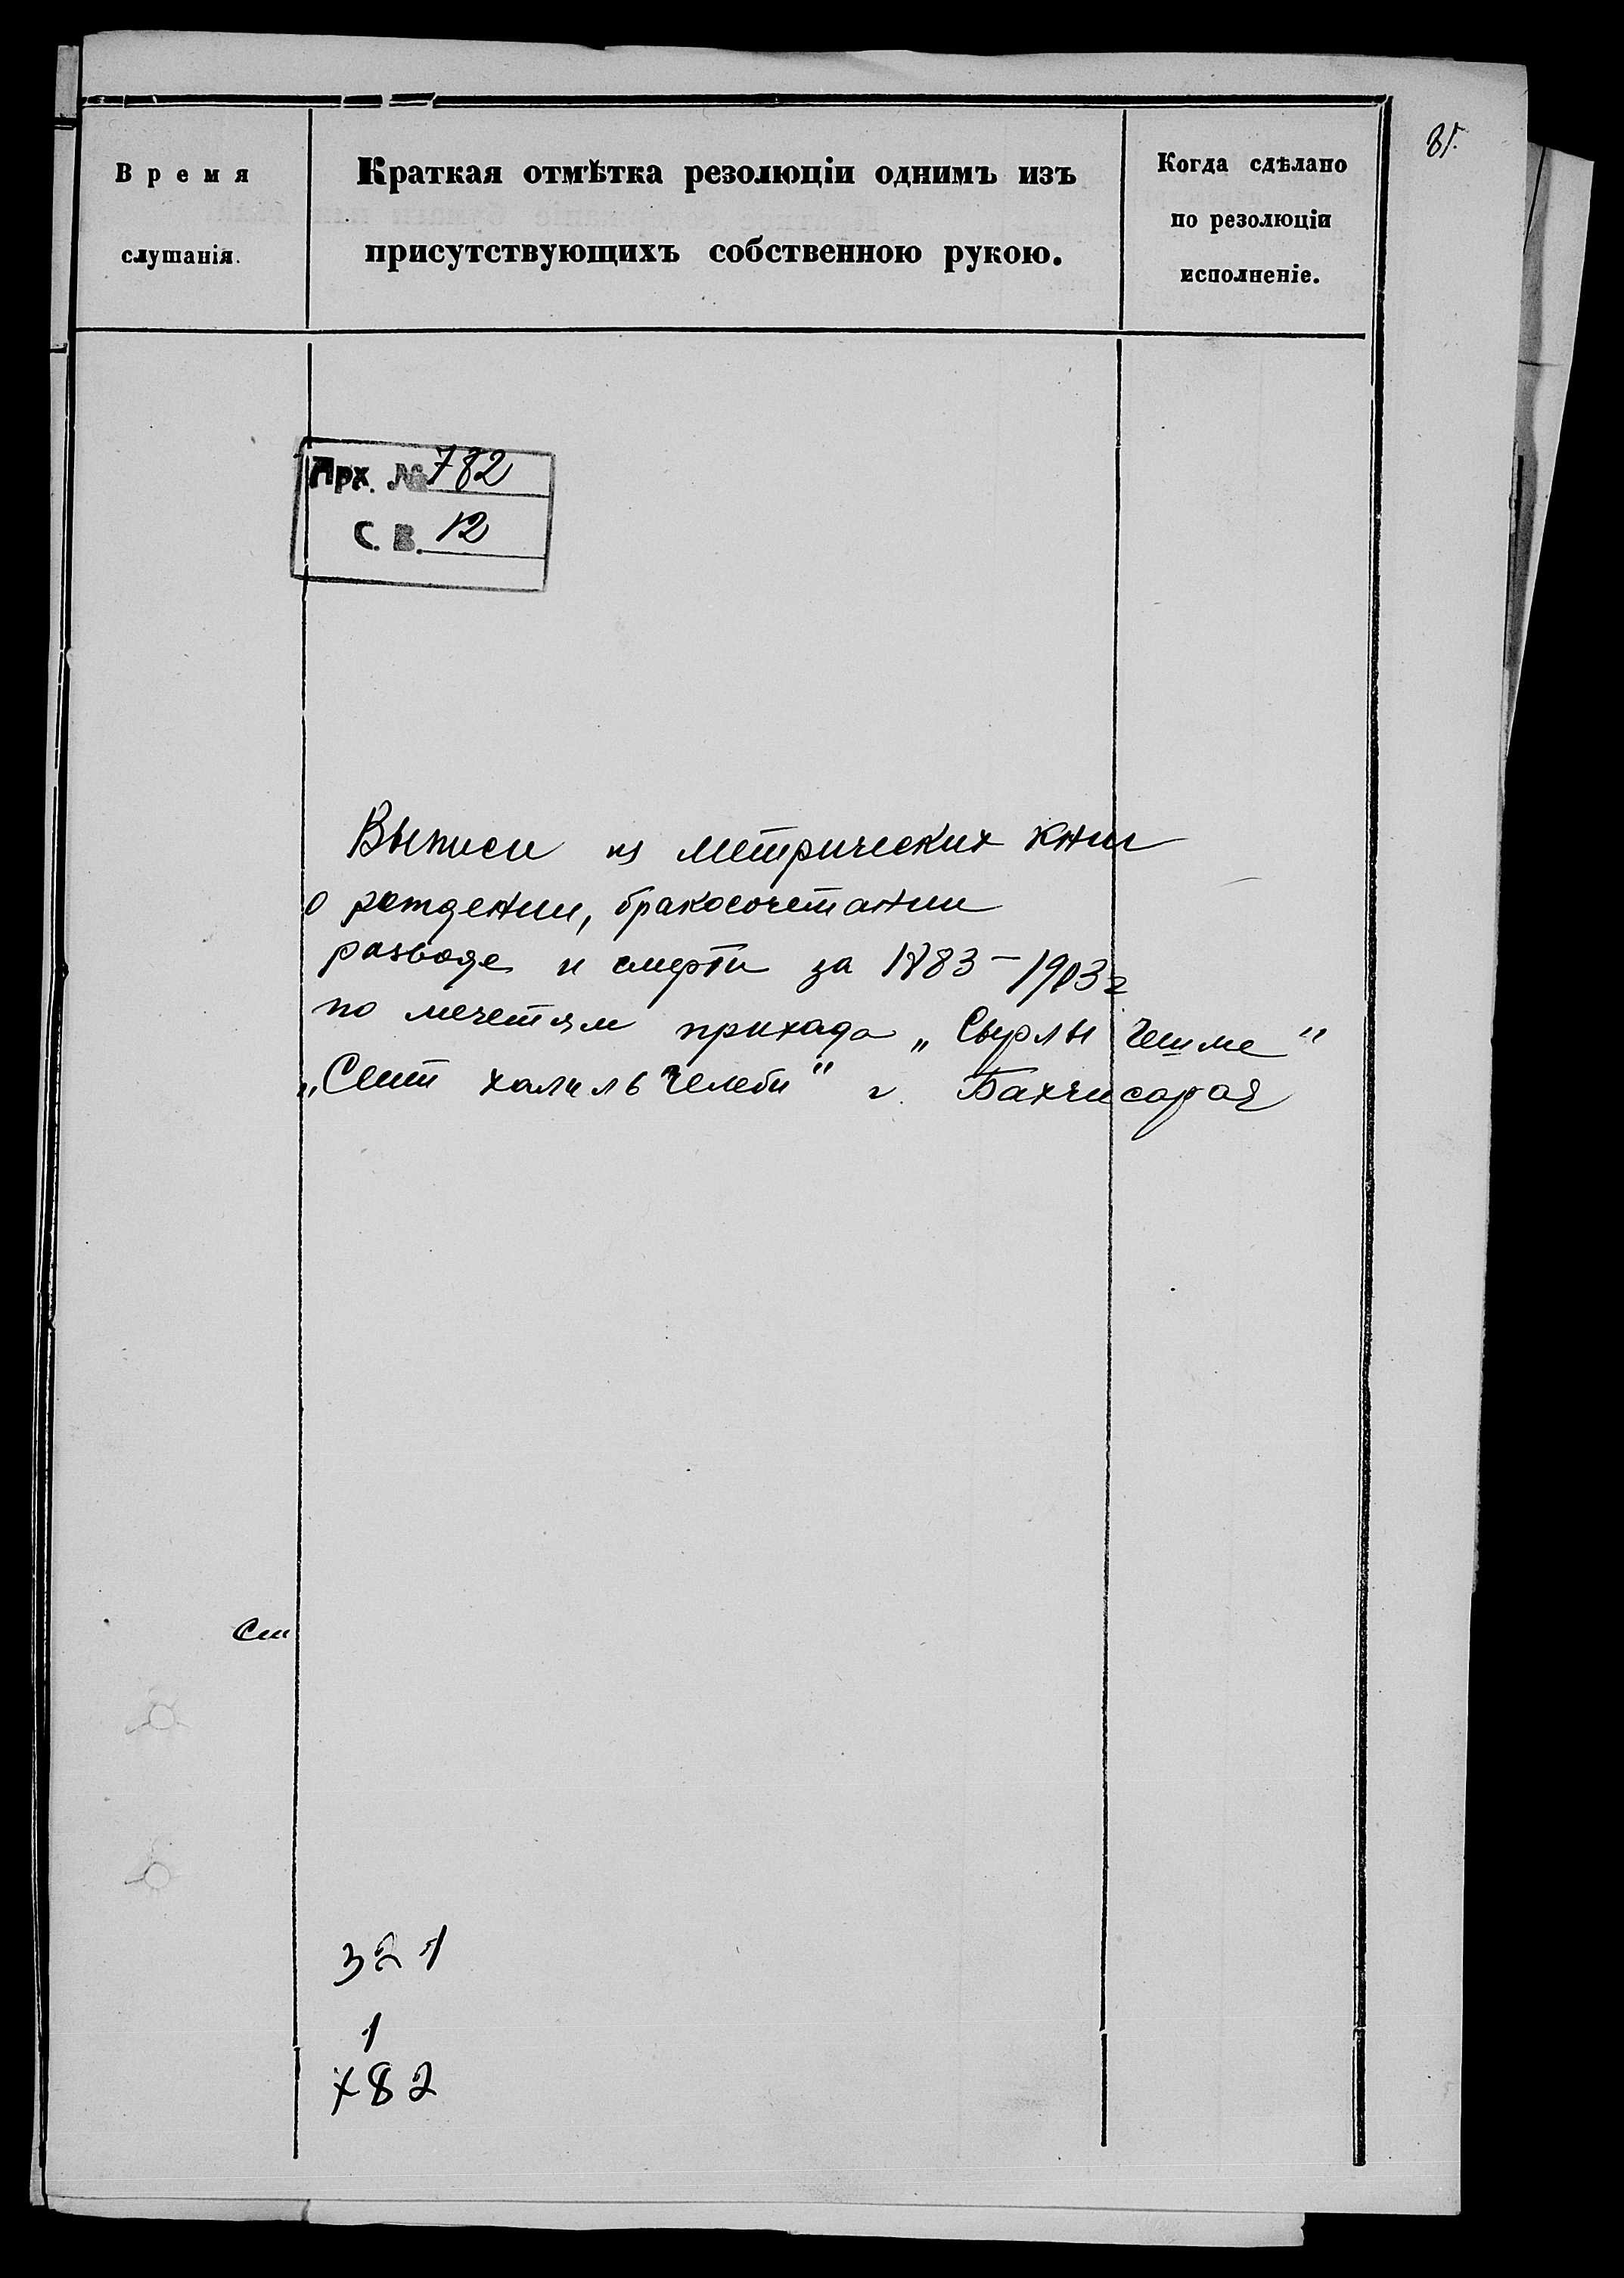 Время
слушанія.
Краткая отмѣтка резолюціи однимъ изъ
присутствующихъ собственною рукою.
Когда сдѣлано
по резолюціи
исполненіе.
Арх. № 782
С. В. 12
Выписи из метрических книг
о рождении, бракосочетании
разводе и смерти за 1883-1903г
по мечетям прихода „Сырлы Чешме"
„Сеит халиль Челеби" г. Бахчисарая
321
1
782